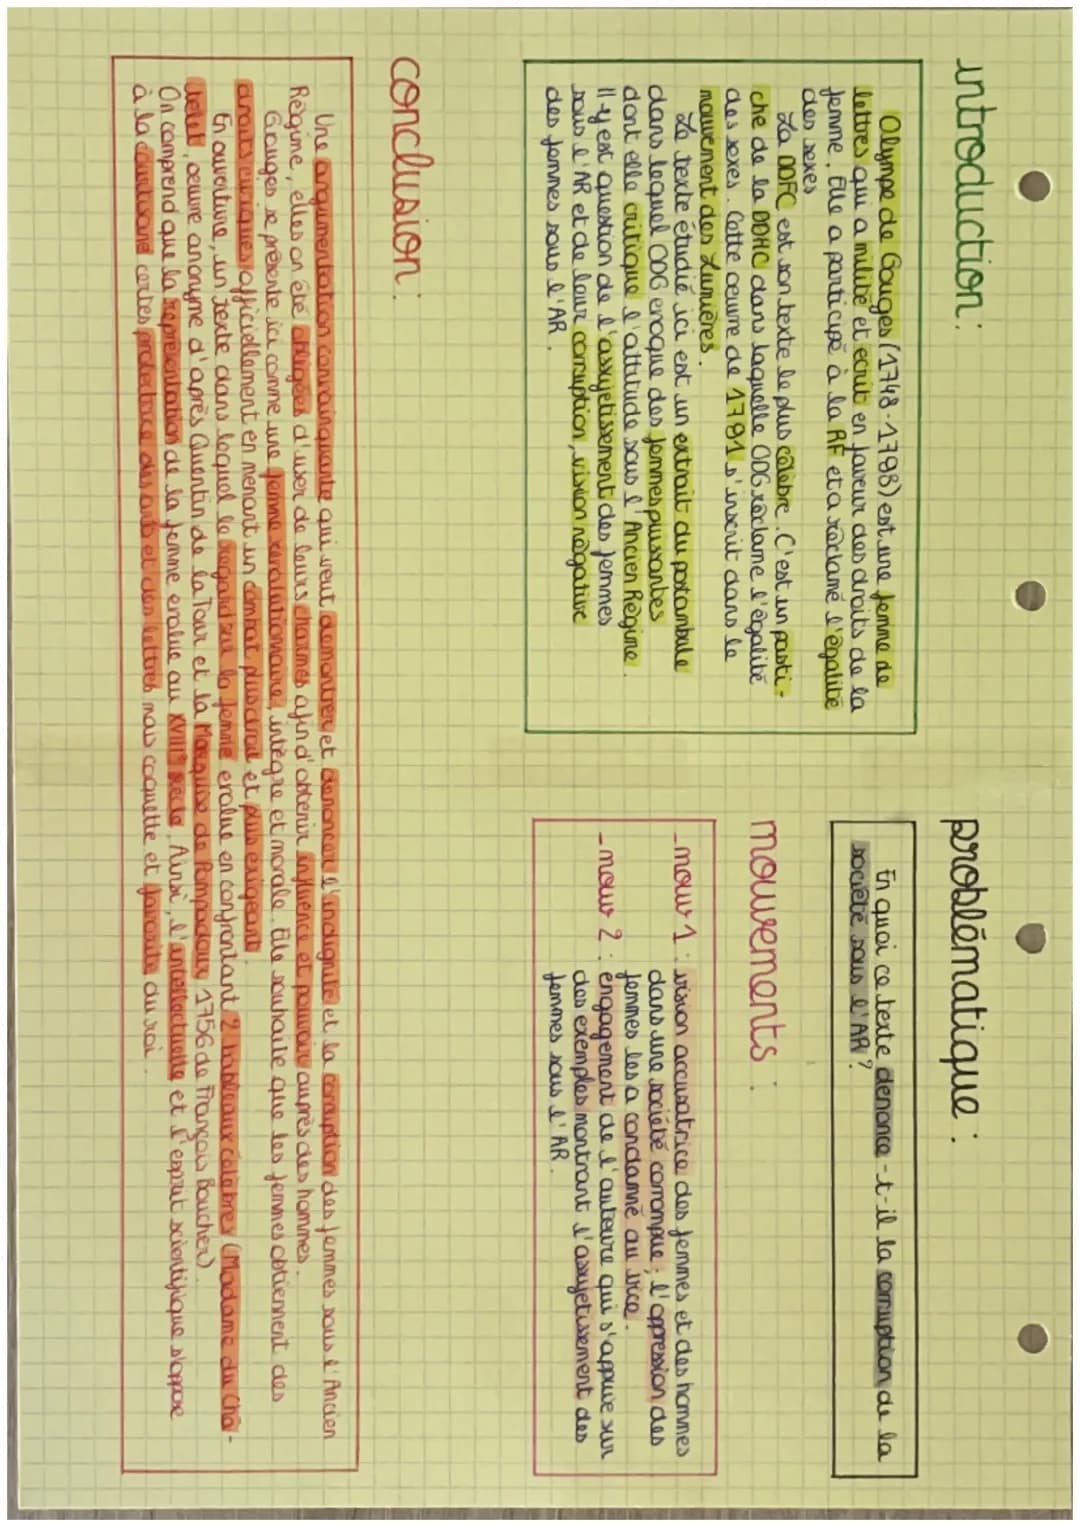 introduction :
Olympe de Gouges (1748-1793) est une femme de
lettres qui a milité et écrit en faveur des droits de la
femme. Elle a participé à la RF et a réclamé l'égalité
des sexes
La DDFC est son texte le plus célèbre. C'est un pasti-
che de la DDHC dans laquelle ODG réclame l'égalité
des sexes. Cette œuvre de 1791 s'inscrit dans le
mouvement des Lumières.
Le texte étudié ici est un extrait du postambule
dans lequel ODG évoque des femmes puissantes
dont elle critique l'attitude sous l'Ancien Régime.
Il y est question de l'assujetissement des femmes
sous l'AR et de leur corruption, vision négative
des femmes sous l'AR.
problématique :
En quoi ce texte dénonce-t-il la corruption de la
société sous l'AR ?
mouvements :
- mouv 1 : vision accusatrice des femmes et des hommes
dans une société corrompue ; l'oppression des
femmes les a condamné au vice.
- mouv 2 : engagement de l'auteure qui s'appuie sur
des exemples montrant l'assujetissement des
femmes sous l'AR.
conclusion :
Une argumentation convainquante qui veut démontrer et dénoncer l'indignité et la corruption des femmes sous l'Ancien
Régime, elles on été obligées d'user de leurs charmes afin d'obtenir influence et pouvoir auprès des hommes.
Gouges se présente ici comme une femme révolutionnaire, intègre et morale. Elle souhaite que les femmes obtiennent des
droits civiques officiellement en menant un combat plus cru et plus exigeant.
En ouverture, un texte dans lequel le regard sur la femme évolue en confrontant 2 tableaux célèbres (Madame du Châ-
telet, œuvre anonyme d'après Quentin de la Tour et la Marquise de Pompadour 1756 de François Boucher).
On comprend que la représentation de la femme évolue au XVIIIe siècle. Ainsi, l'intellectuelle et l'esprit scientifique s'oppose
à la courtisane certes protectrice des arts et des lettres mais coquette et favorite du roi.